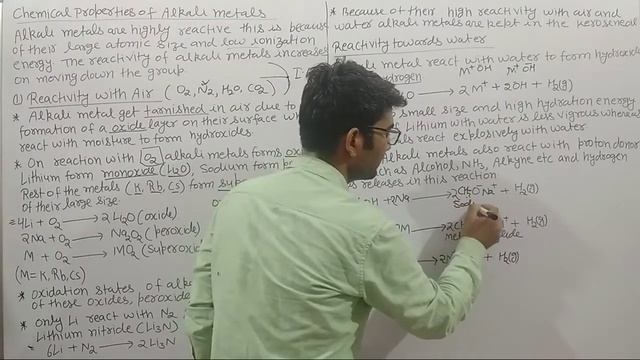 Chemical Properties of Alkali metals
Alkali metals are highly reactive this is because
of their large atomic size and low ionization
energy. The reactivity of alkali metals increases
on moving down the group.
① Reactivity with Air ( O₂, N₂, H₂O, CO₂ )
* Alkali metal get tarnished in air due to
formation of a oxide layer on their surface wh
react with moisture to form hydroxides.
* On reaction with O₂ alkali metals forms oxi
Lithium form monoxide (Li₂O), Sodium form
Rest of the metals (K, Rb, Cs) form su
of their large size.
4Li + O₂ → 2Li₂O (oxide)
2Na + O₂ → Na₂O₂ (peroxide)
M + O₂ → MO₂ (Superoxid
(M = K, Rb, Cs)
* oxidation states, of alka
of these oxides, peroxide
* only Li react with N₂
Lithium nitride (Li₃N)
6Li + N₂ → 2Li₃N
* Because of their high reactivity with air and
water alkali metals are kept in the kerosene
Reactivity towards water
metal react with water to form hydroxide
hydrogen
M⁺OH M⁺OH
O → 2M⁺ + 2OH + H₂(g)
small size and high hydration energy
of Lithium with water is less vigrous whereas
react explosively with water
Alkali metals also react with proton donor
such as Alcohol, NH₃, Alkyne etc and hydrogen
is releases in this reaction
OH + 2Na → Na⁺ + H₂(g)
Sod
M → + H₂(g)
Me ide
→ + H₂(g)